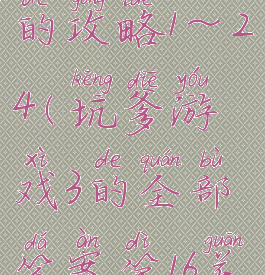 de gōng lüè
的攻略1～2
kēng diē yóu
4(坑爹游
xì de quán bù
戏3的全部
dá àn dì guān
答案第16关